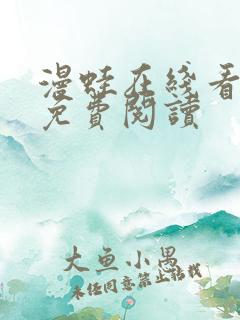 漫蛙在綫看
免費閱讀
大魚小愚
未经同意禁止转载